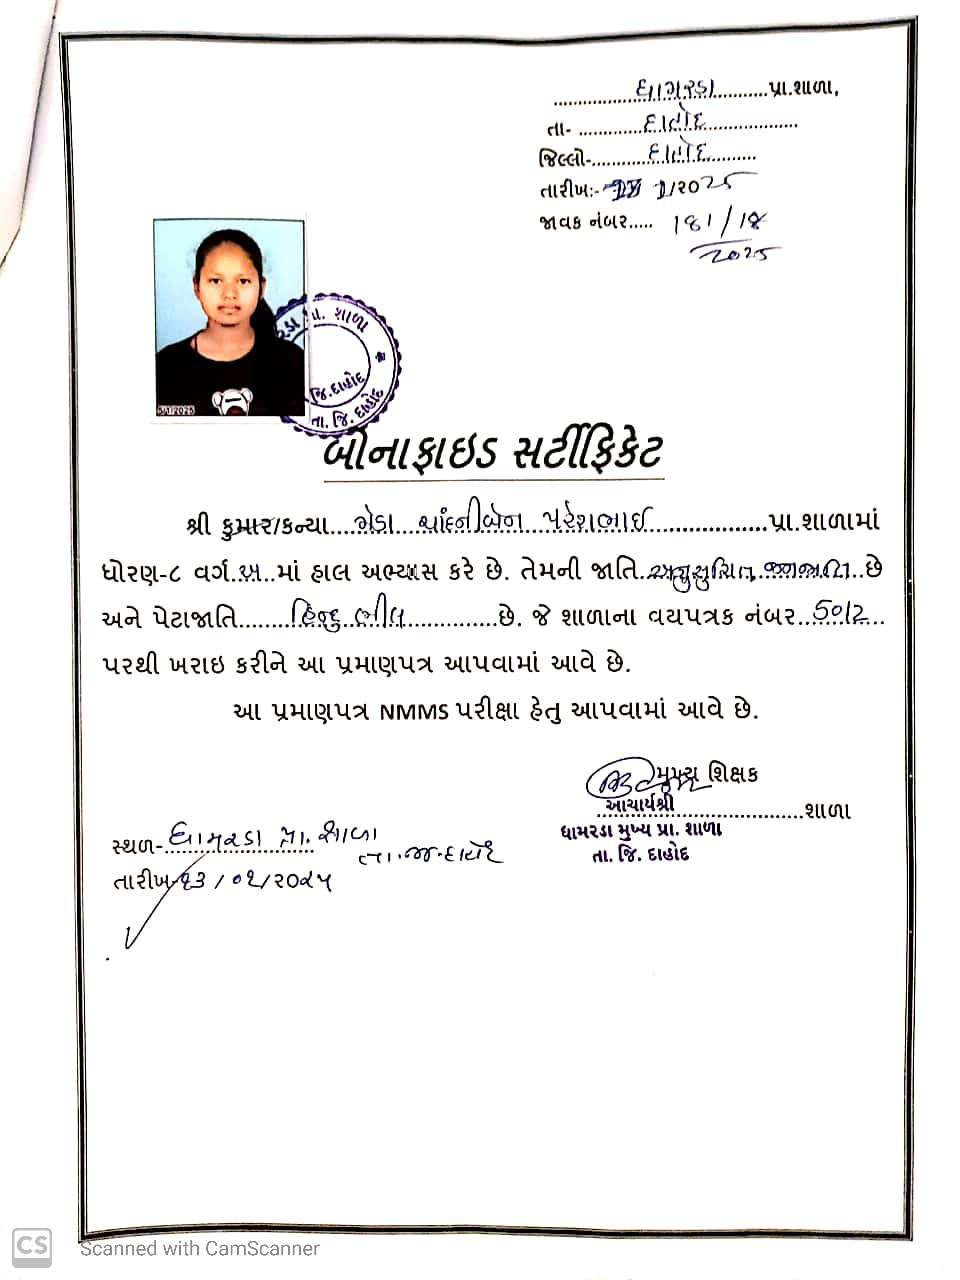 ધામરડા પ્રા.શાળા,
તા- દાહોદ
જિલ્લો- દાહોદ
તારીખ:- 1/2025
જાવક નંબર..... 181/18
2025
પ્રા. શાળા
જિ.દાહોદ
તા. જિ. દાહોદ
5/1/2025
બોનાફાઇડ સર્ટીફિકેટ
શ્રી કુમાર/કન્યા...મેડા ચાંદનીબેન પરેશભાઈ...પ્રા.શાળામાં
ધોરણ-૮ વર્ગ.અ..માં હાલ અભ્યાસ કરે છે. તેમની જાતિ..અનુસુચિત જનજાતિ..છે
અને પેટાજાતિ...હિન્દુ ભીલ...છે. જે શાળાના વયપત્રક નંબર..5012...
પરથી ખરાઇ કરીને આ પ્રમાણપત્ર આપવામાં આવે છે.
આ પ્રમાણપત્ર NMMS પરીક્ષા હેતુ આપવામાં આવે છે.
મુખ્ય શિક્ષક
આચાર્યશ્રી ...શાળા
ધામરડા મુખ્ય પ્રા. શાળા
તા. જિ. દાહોદ
સ્થળ- ધામરડા પ્રા. શાળા
તા.જી.દાહોદ
તારીખ-૧૩/૦૧/૨૦૨૫
CS Scanned with CamScanner